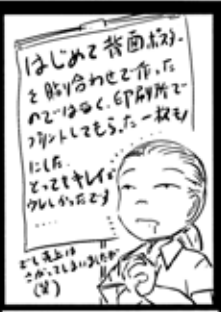 はじめて背面ポスター
を貼り合わせて作った
のではなく、印刷所で
プリントしてもらった一枚もの
にした
とってもキレイで
ウレしかったです
・・・・・
むし売上は
さがってしまいましたが
(笑)